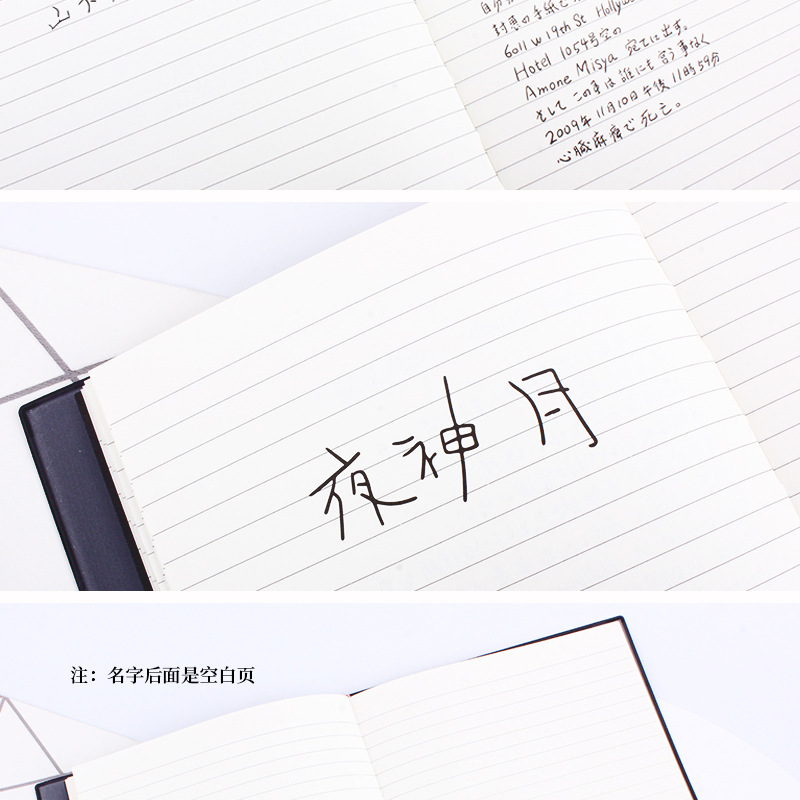 封悪の手紙を
6011 w 19th St Hollyw
Hotel 1054号室の
Amone Misya 宛てに出す。
そして この事は 誰にも言う事なく
2009年11月10日午後11時59分
心臓麻痺で死亡。
夜神月
注：名字后面是空白页